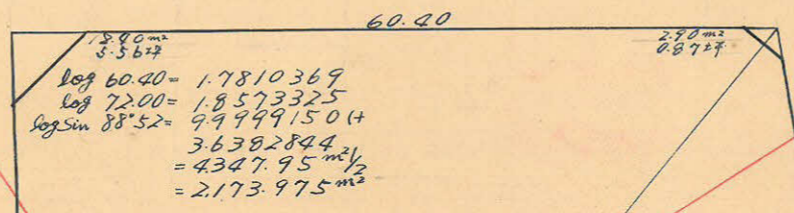 60.40
18.40 m²
5.56坪
2.90 m²
0.87坪
log 60.40 = 1.7810369
log 72.00 = 1.8573325
log Sin 88°52 = 9.9999150 (+
3.6382844
= 4347.95 m²/2
= 2,173.975 m²